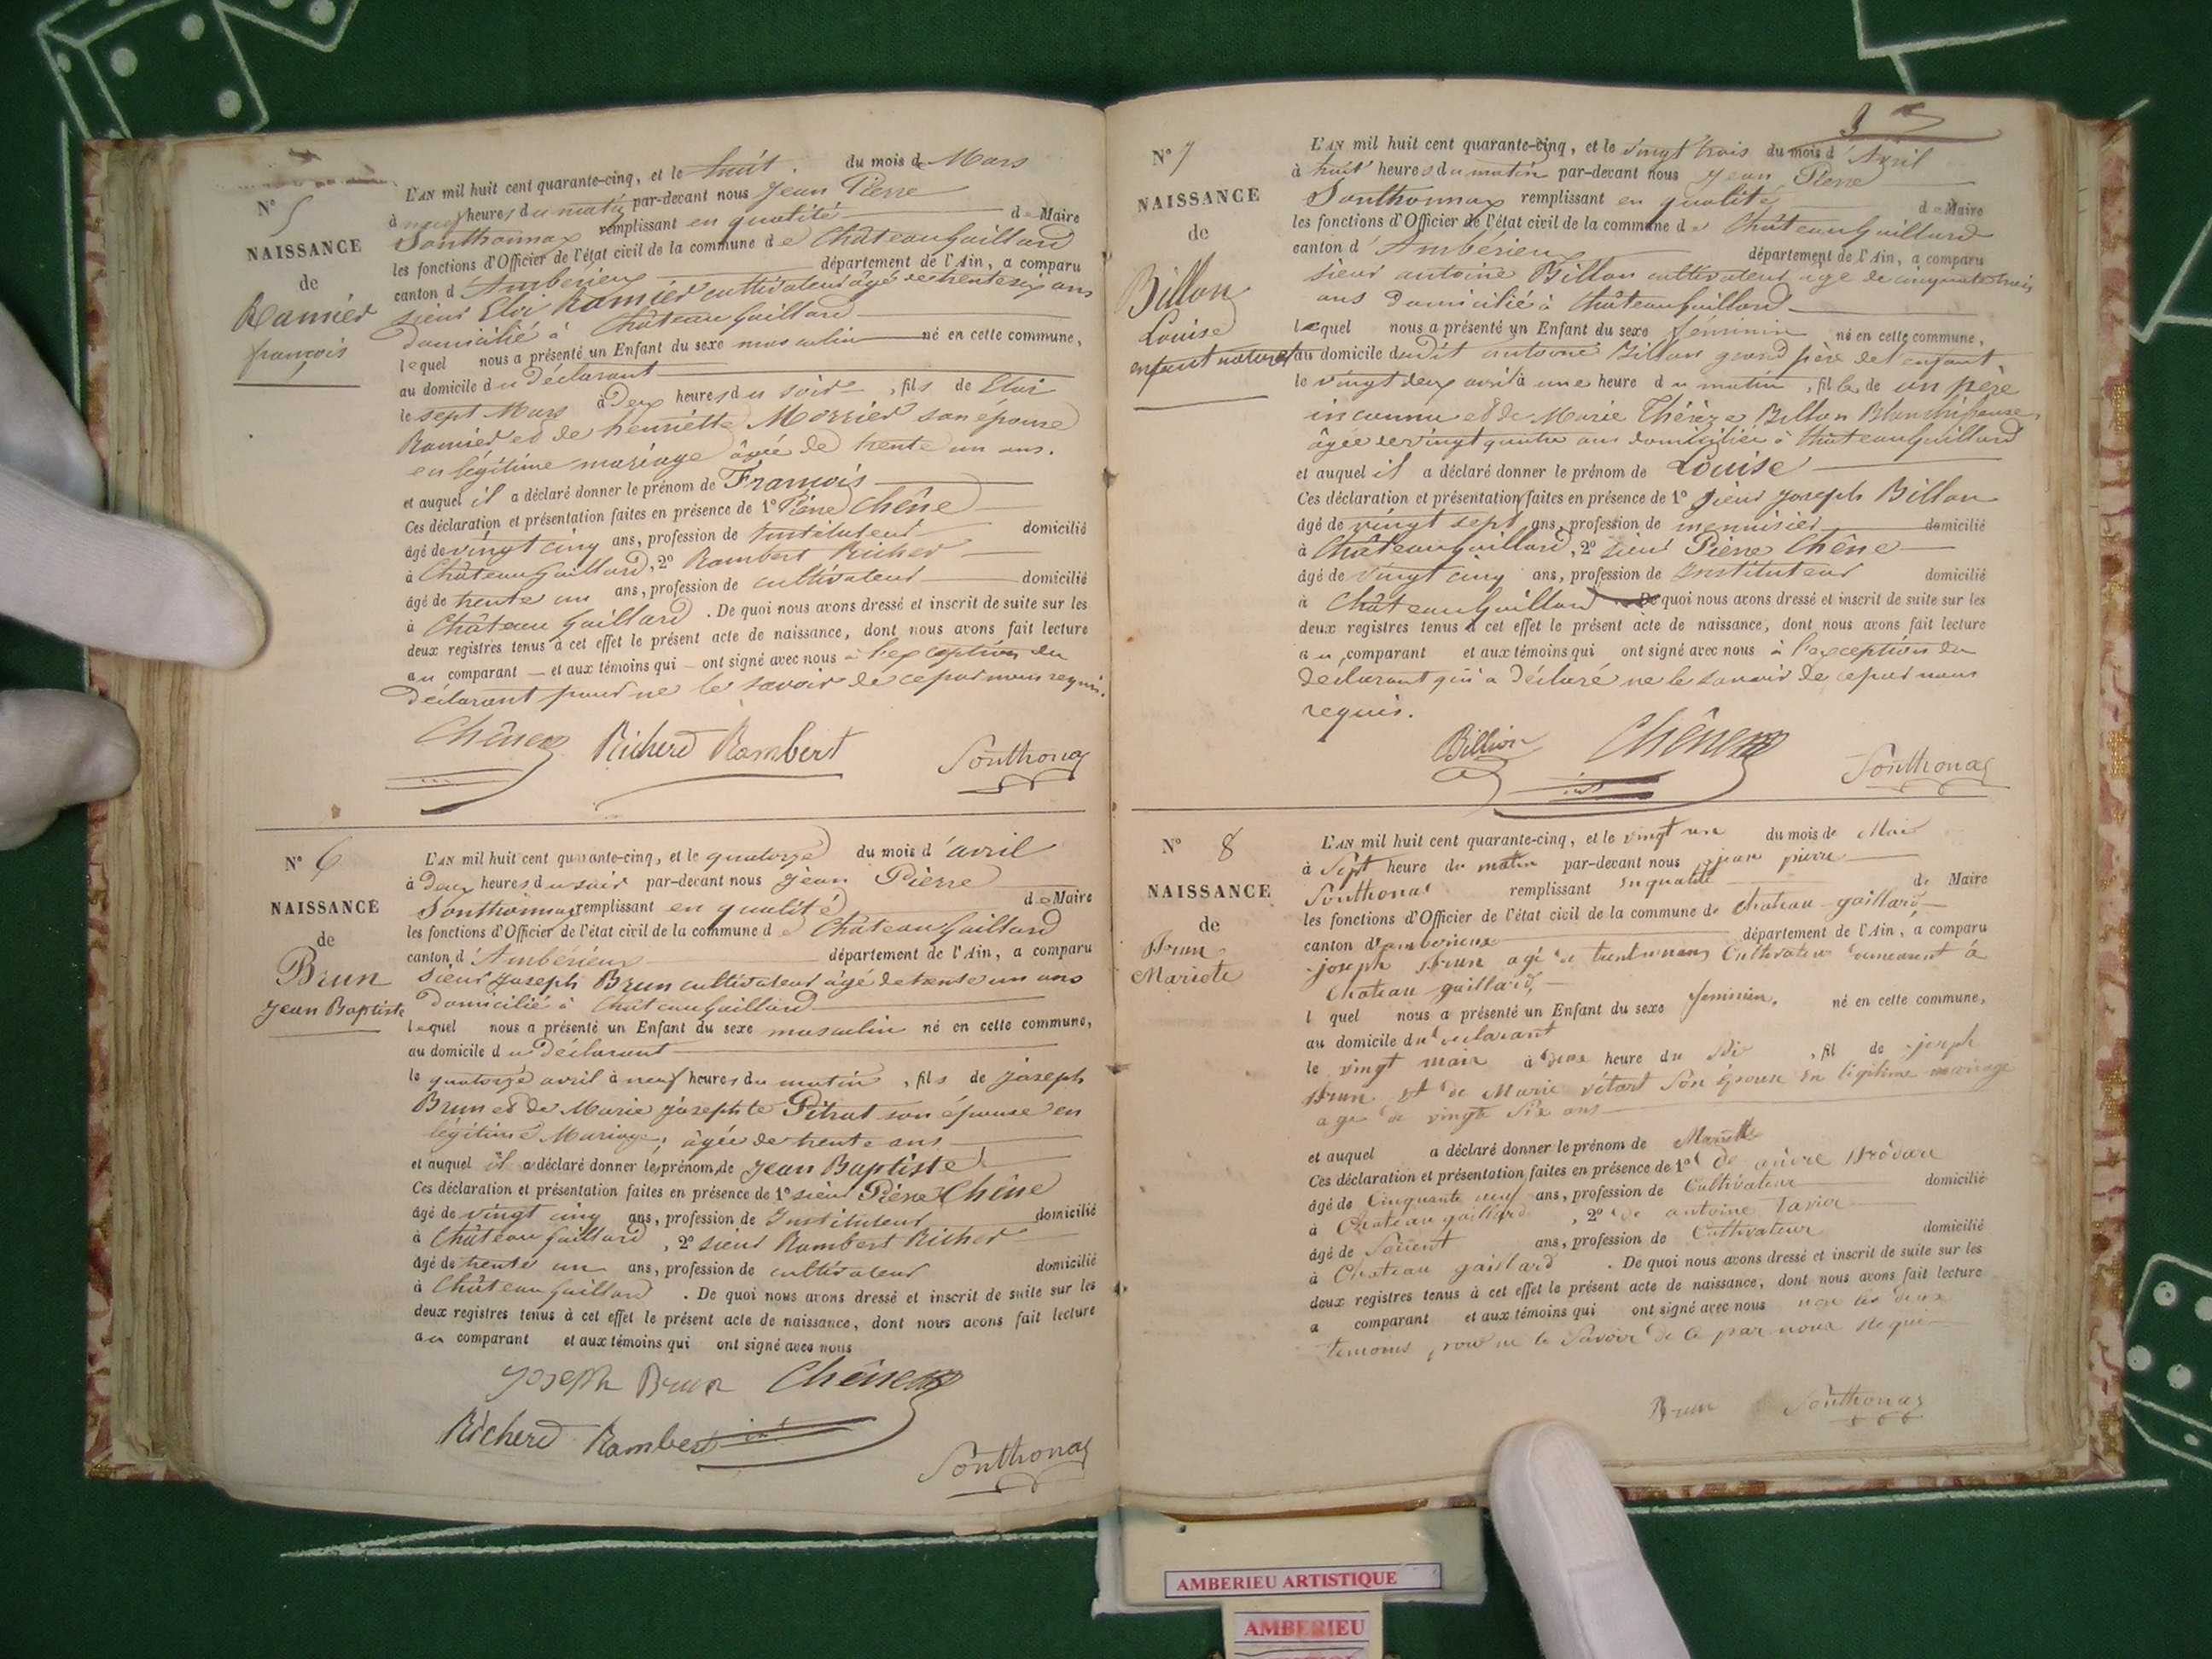 N° 5
NAISSANCE
de
Ramier
françois
L'AN mil huit cent quarante-cinq, et le huit du mois de Mars
à neuf heures du matin par-devant nous Jean Pierre
Sonthonnax remplissant en qualité de Maire
les fonctions d'Officier de l'état civil de la commune de Châteaugaillard
canton d'Ambérieux département de l'Ain, a comparu
sieur Eloi Ramier cultivateur âgé de trente six ans
domicilié à Châteaugaillard
lequel nous a présenté un Enfant du sexe masculin né en cette commune,
au domicile du déclarant
le sept Mars à deux heures du soir, fils de Eloi
Ramier et de henriette Morrier son épouse
en légitime mariage âgée de trente un ans.
et auquel il a déclaré donner le prénom de François
Ces déclaration et présentation faites en présence de 1° Pierre Chêne
âgé de vingt cinq ans, profession de Instituteur domicilié
à Châteaugaillard, 2° Rambert Richer
âgé de trente un ans, profession de cultivateur domicilié
à Château gaillard. De quoi nous avons dressé et inscrit de suite sur les
deux registres tenus à cet effet le présent acte de naissance, dont nous avons fait lecture
au comparant — et aux témoins qui — ont signé avec nous à l'exception du
déclarant pour ne le savoir de ce par nous requis.
Chêne Richerd Rambert Sonthonax
N° 6
NAISSANCE
de
Brun
Jean Baptiste
L'AN mil huit cent quarante-cinq, et le quatorze du mois d'avril
à deux heures du soir par-devant nous Jean Pierre
Sonthonnax remplissant en qualité de Maire
les fonctions d'Officier de l'état civil de la commune de Châteaugaillard
canton d'Ambérieux département de l'Ain, a comparu
sieur Joseph Brun cultivateur âgé de trente un ans
domicilié à Châteaugaillard
lequel nous a présenté un Enfant du sexe masculin né en cette commune,
au domicile du déclarant
le quatorze avril à neuf heures du matin, fils de Joseph
Brun et de Marie josephte Pitrat son épouse en
légitime Mariage; âgée de trente ans
et auquel il a déclaré donner le prénom de Jean Baptiste
Ces déclaration et présentation faites en présence de 1° sieur Pierre Chêne
âgé de vingt cinq ans, profession de Instituteur domicilié
à Châteaugaillard, 2° sieur Rambert Richer
âgé de trente un ans, profession de cultivateur domicilié
à Châteaugaillard. De quoi nous avons dressé et inscrit de suite sur les
deux registres tenus à cet effet le présent acte de naissance, dont nous avons fait lecture
au comparant et aux témoins qui ont signé avec nous
Joseph Brun Chêne
Richerd Rambert Sonthonax
3
N° 7
NAISSANCE
de
Billon
Louise
enfant naturel
L'AN mil huit cent quarante-cinq, et le vingt trois du mois d'Avril
à huit heures du matin par-devant nous Jean Pierre
Sonthonnax remplissant en qualité de Maire
les fonctions d'Officier de l'état civil de la commune de Châteaugaillard
canton d'Ambérieux département de l'Ain, a comparu
sieur antoine Billon cultivateur âgé de cinquante trois
ans domicilié à Châteaugaillard
lequel nous a présenté un Enfant du sexe féminin né en cette commune,
au domicile dudit antoine Billon grand père de l'enfant
le vingt deux avril à une heure du matin, fille de un père
inconnu et de Marie Thérèze Billon Blanchisseuse
âgée de vingt quatre ans domiciliée à Châteaugaillard
et auquel il a déclaré donner le prénom de Louise
Ces déclaration et présentation faites en présence de 1° sieur Joseph Billon
âgé de vingt sept ans, profession de menuisier domicilié
à Châteaugaillard, 2° sieur Pierre Chêne
âgé de vingt cinq ans, profession de Instituteur domicilié
à Châteaugaillard De quoi nous avons dressé et inscrit de suite sur les
deux registres tenus à cet effet le présent acte de naissance, dont nous avons fait lecture
au comparant et aux témoins qui ont signé avec nous à l'exception du
déclarant qui a déclaré ne le savoir de ce par nous
requis.
Billion Chêne Sonthonax
N° 8
NAISSANCE
de
Brun
Mariete
L'AN mil huit cent quarante-cinq, et le vingt un du mois de Mai
à sept heure du matin par-devant nous jean pierre
Sonthonax remplissant en qualité de Maire
les fonctions d'Officier de l'état civil de la commune de chateau-gaillard
canton d'amberieux département de l'Ain, a comparu
joseph Brun agé de Cultivateur demeurant à
Chateau gaillard,
l quel nous a présenté un Enfant du sexe feminin, né en cette commune,
au domicile du declarant
le vingt à heure du, fil de joseph
Brun et de Marie son épouse en légitime mariage
agé de vingt six ans
et auquel a déclaré donner le prénom de
Ces déclaration et présentation faites en présence de 1°
âgé de Cinquante neuf ans, profession de Cultivateur domicilié
à Chateau gaillard, 2° antoine
âgé de ans, profession de Cultivateur domicilié
à Chateau gaillard. De quoi nous avons dressé et inscrit de suite sur les
deux registres tenus à cet effet le présent acte de naissance, dont nous avons fait lecture
a comparant et aux témoins qui ont signé avec nous non les deux
temoins pour ne le savoir de ce par nous requi
Brun Sonthonax
AMBERIEU ARTISTIQUE
AMBERIEU